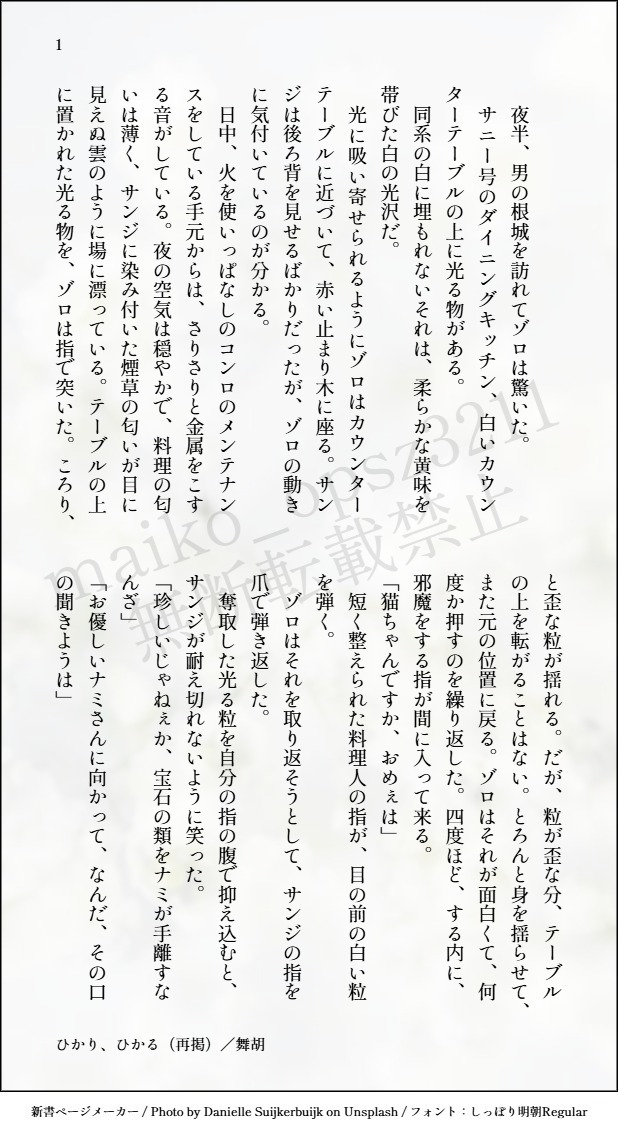 1
夜半、男の根城を訪れてゾロは驚いた。
サニー号のダイニングキッチン、白いカウン
ターテーブルの上に光る物がある。
同系の白に埋もれないそれは、柔らかな黄味を
帯びた白の光沢だ。
光に吸い寄せられるようにゾロはカウンター
テーブルに近づいて、赤い止まり木に座る。サン
ジは後ろ背を見せるばかりだったが、ゾロの動き
に気付いているのが分かる。
日中、火を使いっぱなしのコンロのメンテナン
スをしている手元からは、さりさりと金属をこす
る音がしている。夜の空気は穏やかで、料理の匂
いは薄く、サンジに染み付いた煙草の匂いが目に
見えぬ雲のように場に漂っている。テーブルの上
に置かれた光る物を、ゾロは指で突いた。ころり、
と歪な粒が揺れる。だが、粒が歪な分、テーブル
の上を転がることはない。とろんと身を揺らせて、
また元の位置に戻る。ゾロはそれが面白くて、何
度か押すのを繰り返した。四度ほど、する内に、
邪魔をする指が間に入って来る。
「猫ちゃんですか、おめぇは」
短く整えられた料理人の指が、目の前の白い粒
を弾く。
ゾロはそれを取り返そうとして、サンジの指を
爪で弾き返した。
奪取した光る粒を自分の指の腹で抑え込むと、
サンジが耐え切れないように笑った。
「珍しいじゃねぇか、宝石の類をナミが手離すな
んざ」
「お優しいナミさんに向かって、なんだ、その口
の聞きようは」
maiko_opsz3211
無断転載禁止
ひかり、ひかる（再掲）／舞胡
新書ページメーカー / Photo by Danielle Suijkerbuijk on Unsplash / フォント：しっぽり明朝Regular